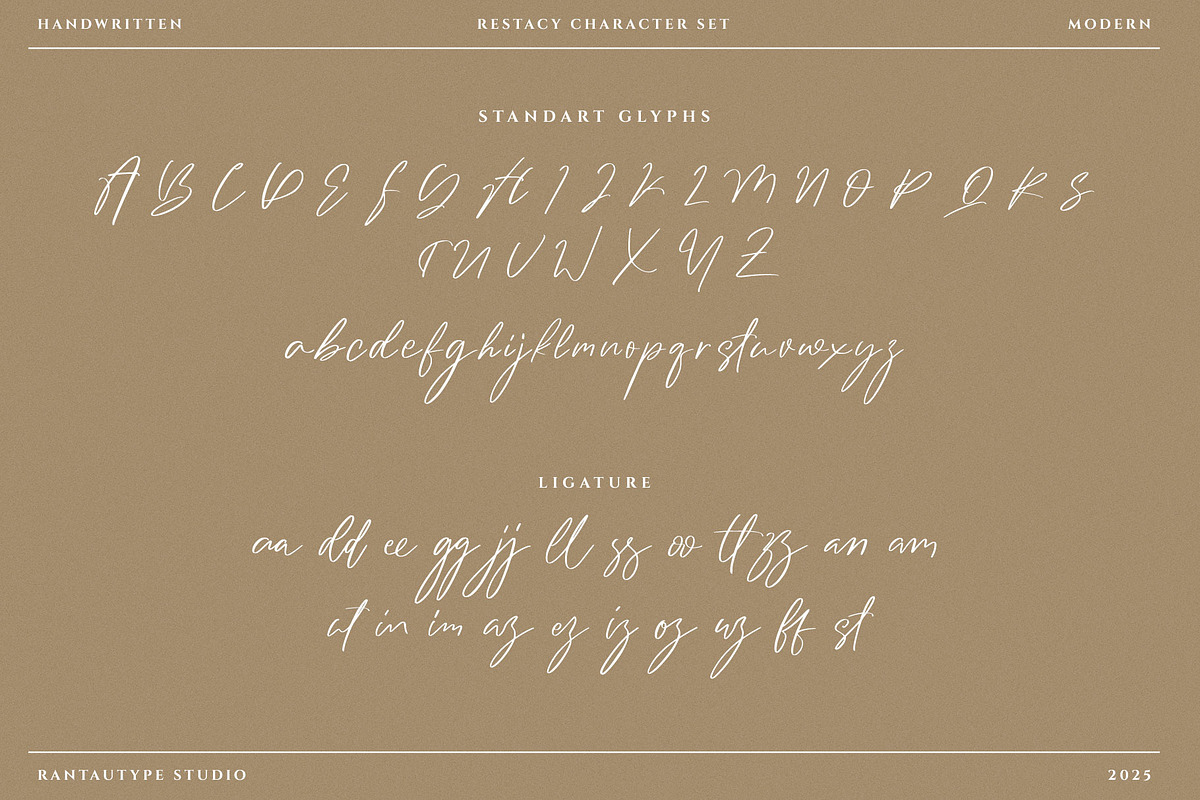 HANDWRITTEN RESTACY CHARACTER SET MODERN
STANDART GLYPHS
A B C D E F G H I J K L M N O P Q R S
T U V W X Y Z
abcdefghijklmnopqrstuvwxyz
LIGATURE
aa dd ee gg jj ll ss oo tt zz an am
at in im az ez iz oz uz ff st
RANTAUTYPE STUDIO 2025